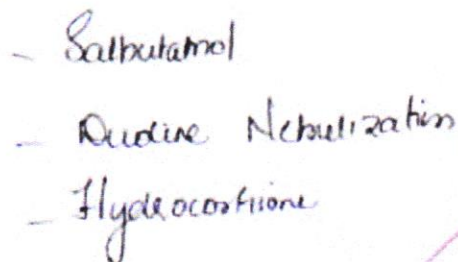 - Salbutamol
- Duoline Nebulization
- Hydrocortisone